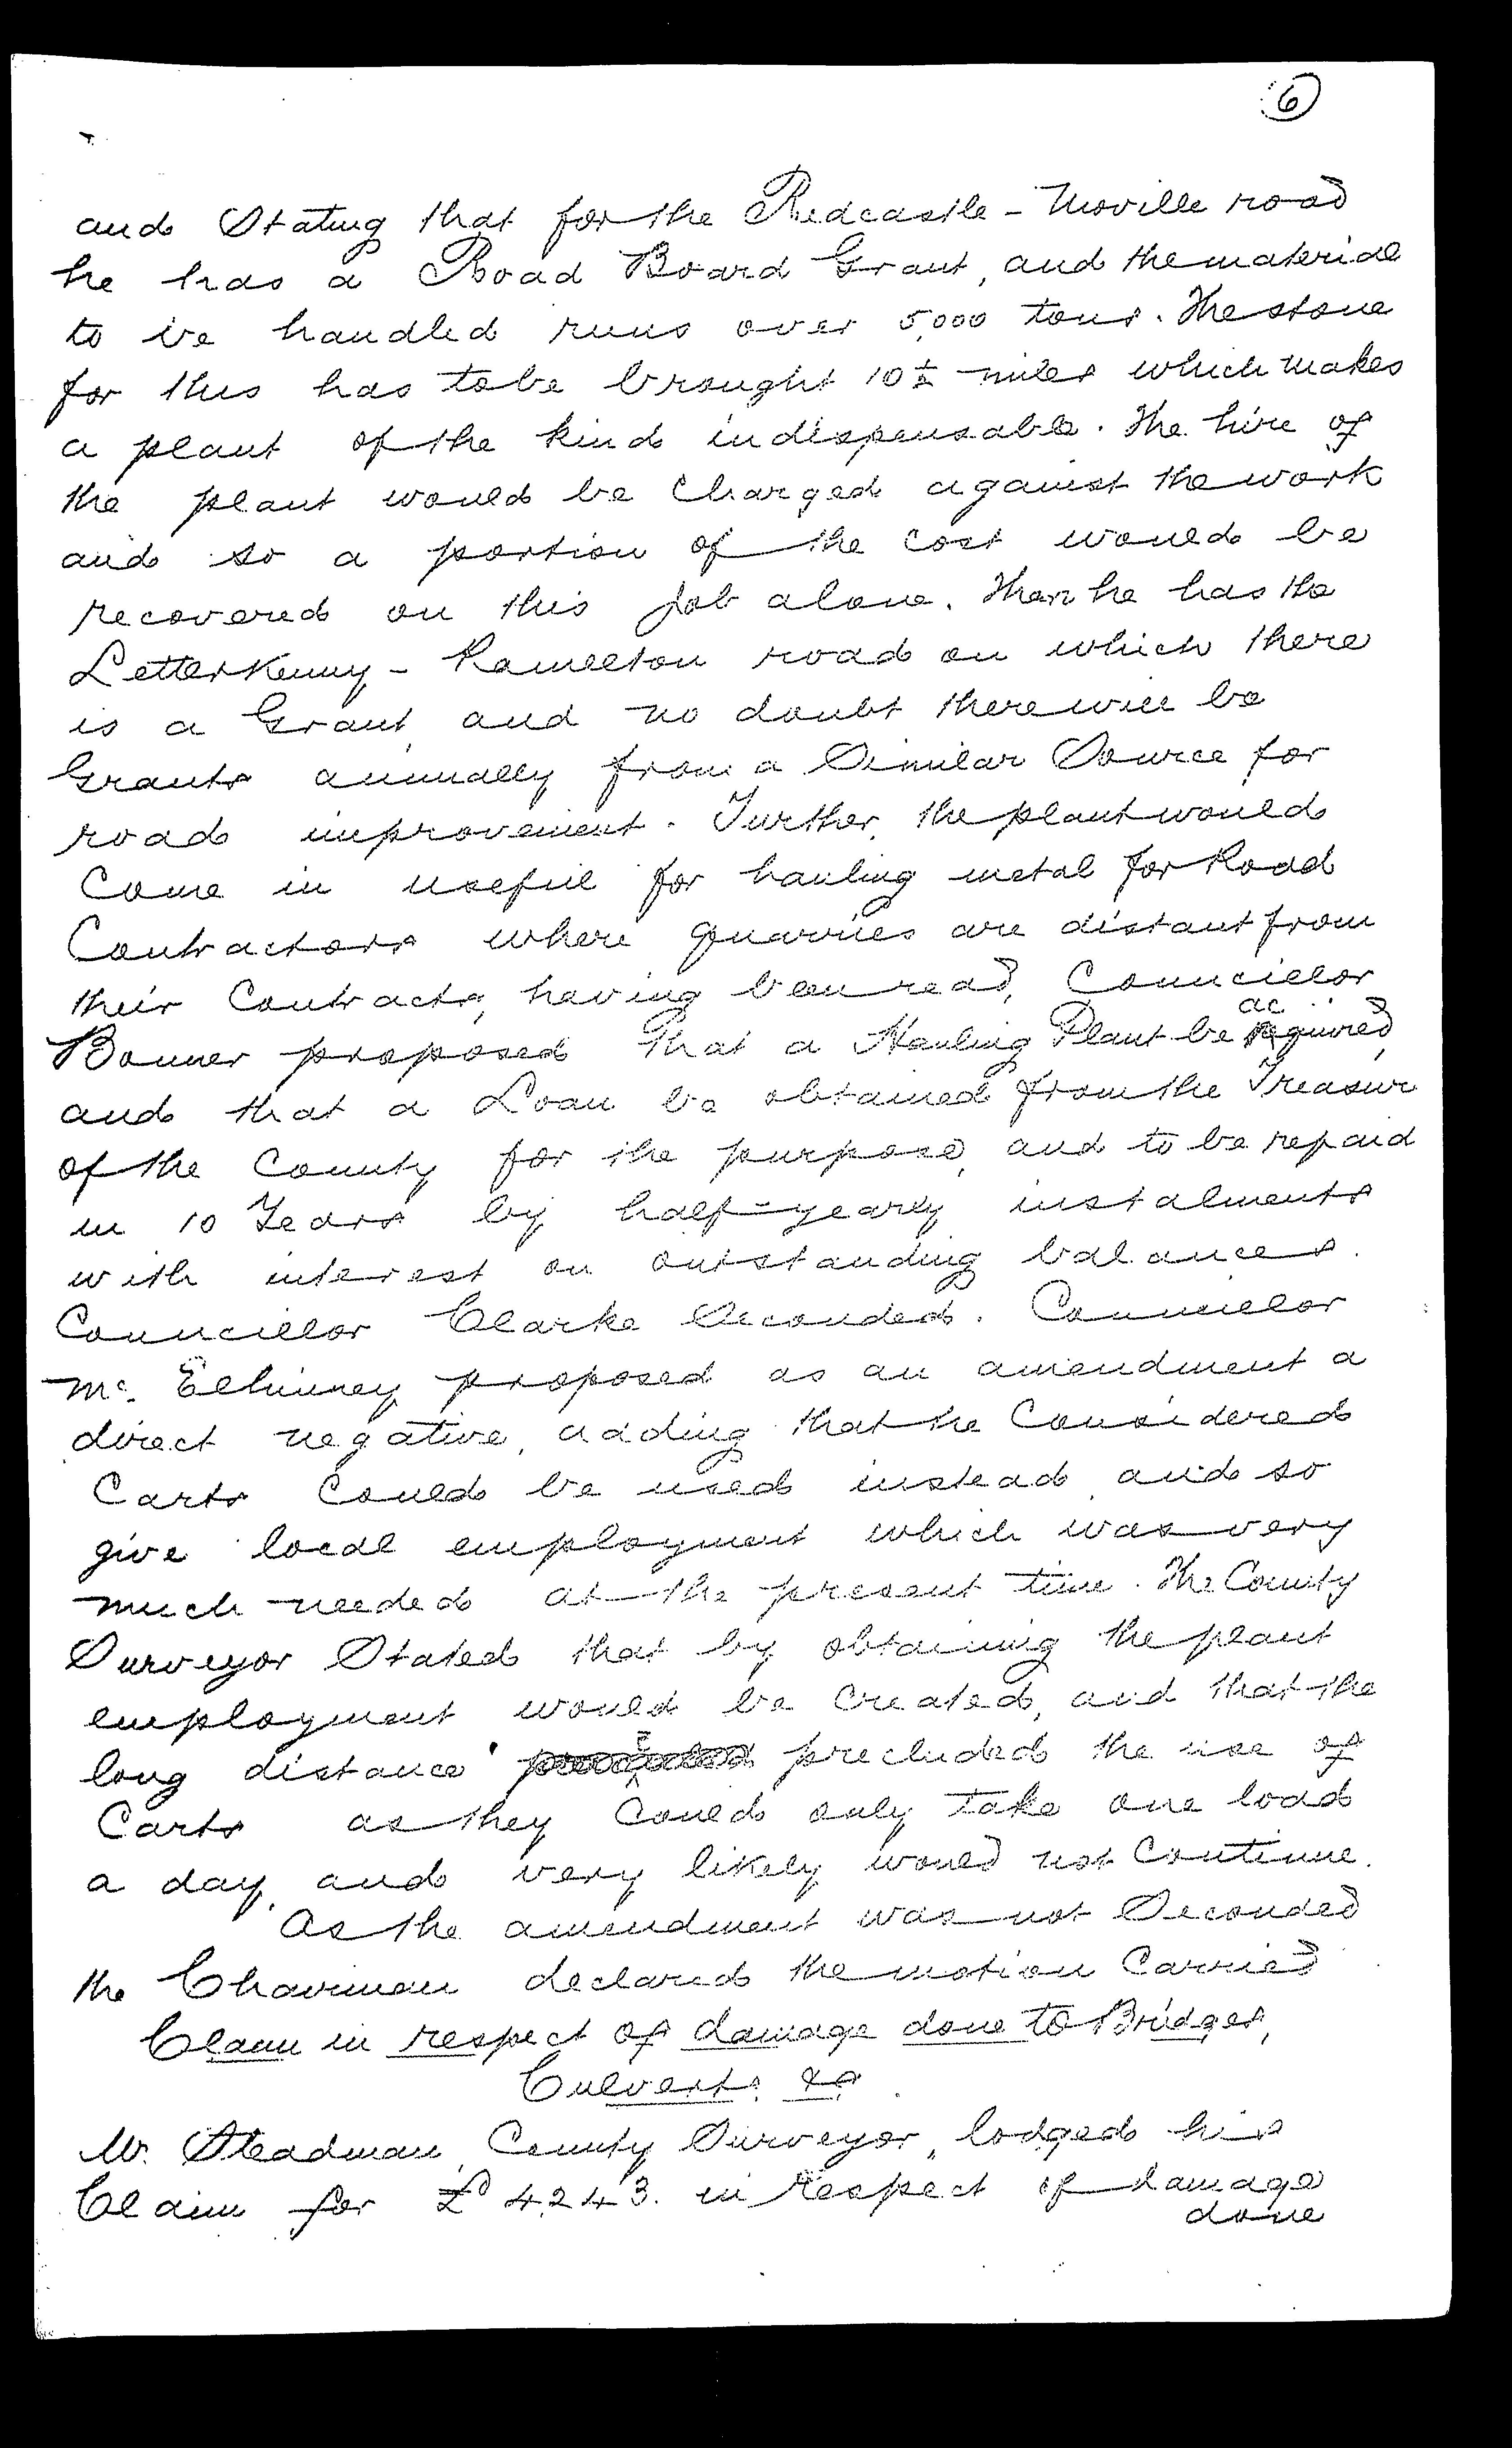 6
and Stating that for the Redcastle - Moville road
he has a Road Board Grant, and the material
to be handled runs over 5,000 tons. The stone
for this has to be brought 10½ miles which makes
a plant of the kind indispensable. The hire of
the plant would be Charged against the work
and so a portion of the cost would be
recovered on this job alone. Then he has the
Letterkenny - Ramelton road on which there
is a Grant, and no doubt there will be
Grants annually from a Similar Source for
road improvement. Further, the plant would
Come in useful for hauling metal for Road
Contractors where quarries are distant from
their Contracts, having been read, Councillor
Bonner proposed That a Hauling Plant be acquired,
and that a Loan be obtained from the Treasurer
of the County for the purpose, and to be repaid
in 10 Years by half-yearly instalments
with interest on outstanding balances.
Councillor Clarke Seconded. Councillor
Mc. Elhinney proposed as an amendment a
direct negative, adding that he Considered
Carts Could be used instead and so
give local employment which was very
much needed at the present time. The County
Surveyor Stated that by obtaining the plant
employment would be Created, and that the
long distance precluded the use of
Carts as they Could only take one load
a day, and very likely would not Continue.
As the amendment was not Seconded
the Chairman declared the motion Carried
Claim in respect of damage done to Bridges,
Culverts &c.
Mr. Steadman, County Surveyor, lodged his
Claim for £4,243. in respect of damage
done